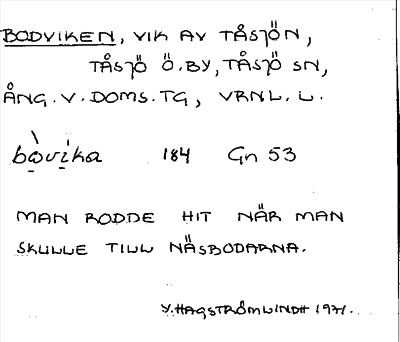 BODVIKEN, VIK AV TÅSJÖN,
TÅSJÖ Ö. BY, TÅSJÖ SN,
ÅNG. V. DOMS. TG, VRNL. L.
bòvika 184 Gn 53
MAN RODDE HIT NÄR MAN
SKULLE TILL NÄSBODARNA.
Y. HAGSTRÖM LINDH 1971.